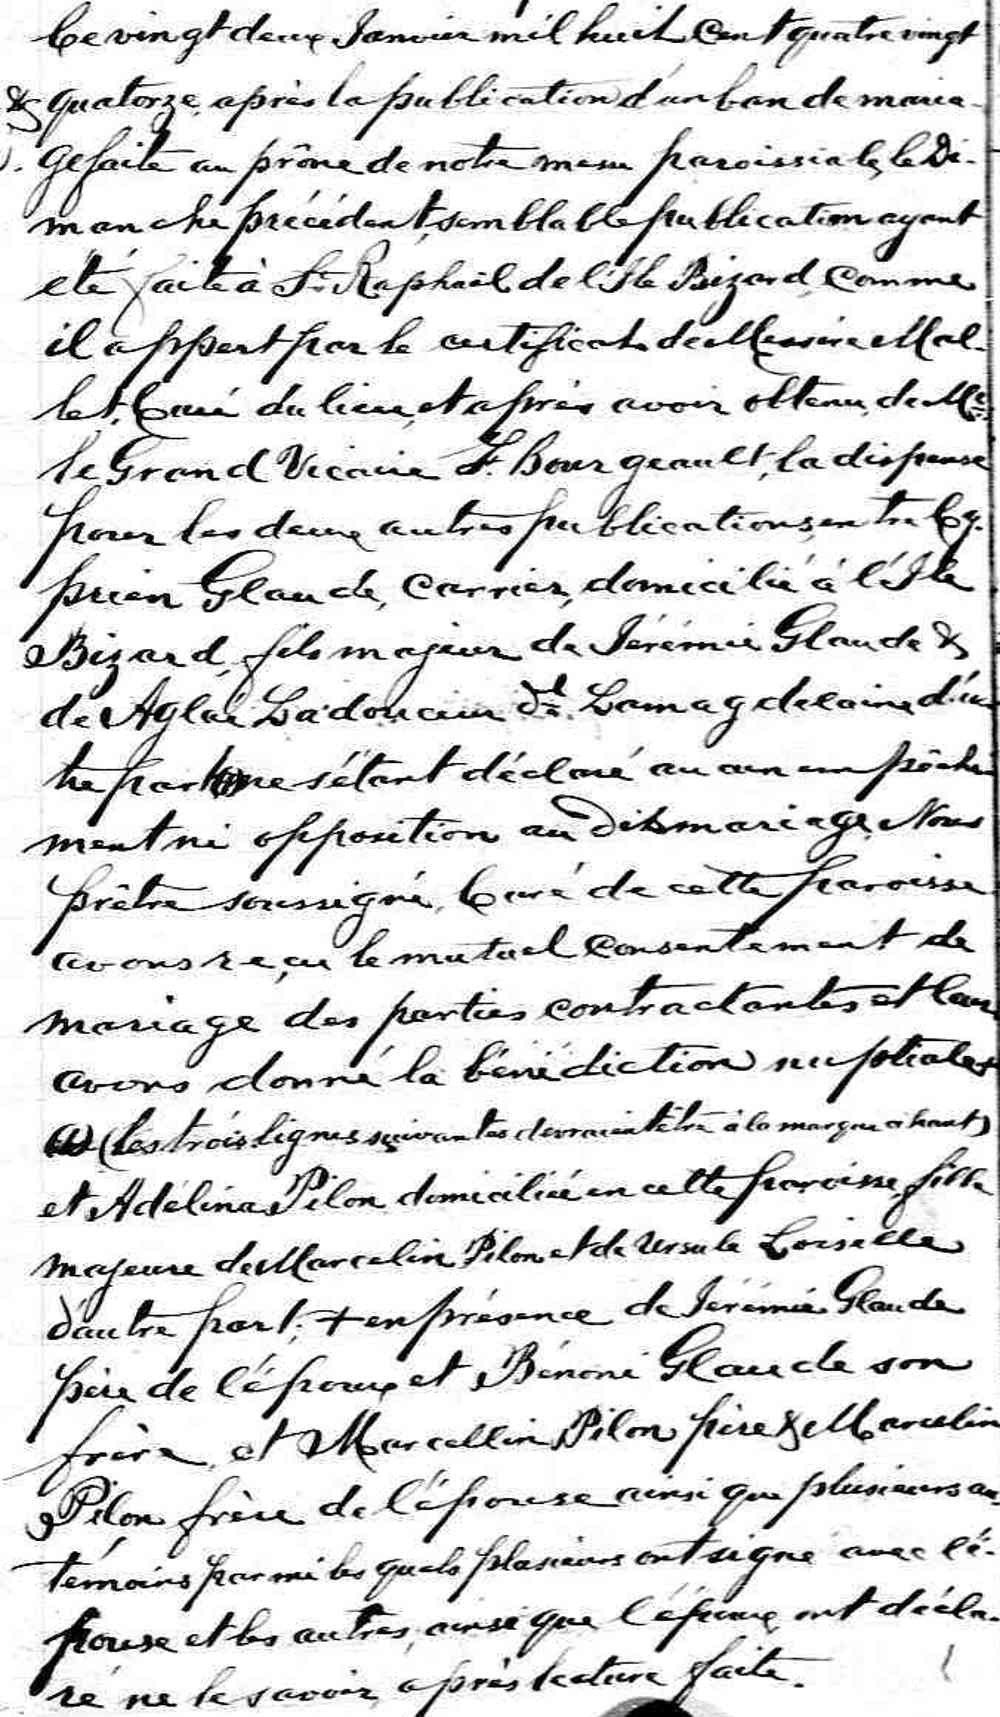 Ce vingt deux Janvier mil huit Cent quatre vingt
& quatorze, après la publication d'un ban de maria-
ge faite au prône de notre messe paroissiale, le Di-
manche précédent, semblable publication ayant
été faite à St. Raphaël de l'Ile Bizard, Comme
il appert par le certificat de Messire Mal-
let, Curé du lieu, et après avoir obtenu, de Mr.
le Grand Vicaire F. Bourgeault, la dispense
pour les deux autres publications, entre Cy-
prien Glaude, Carrier, domicilié à l'Ile
Bizard, fils majeur de Jérémie Glaude &
de Aglaé Ladouceur dt. Lamagdelaine d'u-
ne part (a) ne s'étant déclaré aucun empêche
ment ni opposition au dit mariage, Nous
prêtre soussigné, Curé de cette paroisse
avons reçu le mutuel Consentement de
mariage des parties contractantes et leur
avons donné la bénédiction nuptiale +
(a) (Les trois lignes suivantes devraient être à la marge ci haut)
et Adélina Pilon domiciliée en cette paroisse, fille
majeure de Marcelin Pilon et de Ursule Loiselle
d'autre part; + en présence de Jérémie Glaude
père de l'époux et Bénoni Glaude son
frère, et Marcellin Pilon père & Marcelin
Pilon frère de l'épouse ainsi que plusieurs au.
témoins parmi les quels plusieurs ont signé avec l'é-
pouse et les autres, ainsi que l'époux, ont décla-
ré ne le savoir, après lecture faite.